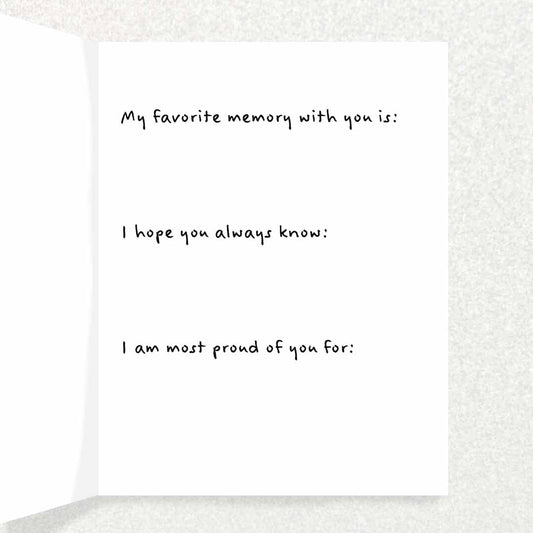 My favorite memory with you is:
I hope you always know:
I am most proud of you for: